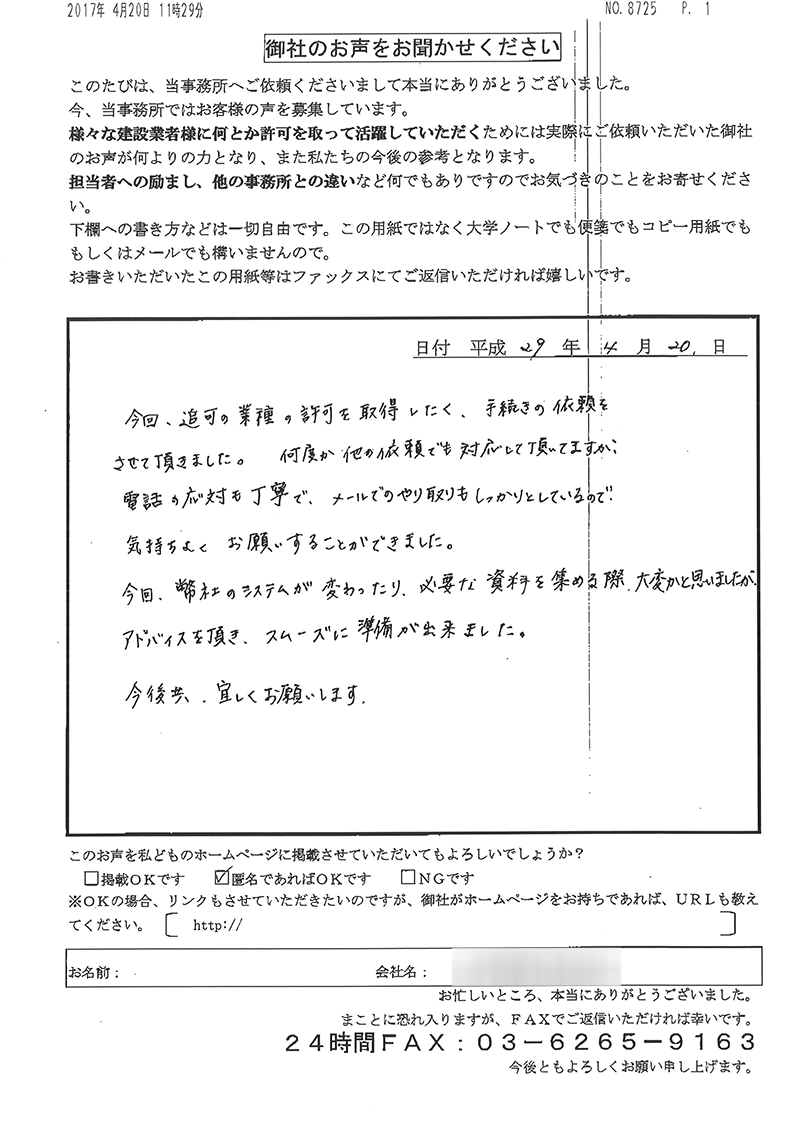 2017年 4月20日 11時29分 NO.8725 P. 1
御社のお声をお聞かせください
このたびは、当事務所へご依頼くださいまして本当にありがとうございました。
今、当事務所ではお客様の声を募集しています。
様々な建設業者様に何とか許可を取って活躍していただくためには実際にご依頼いただいた御社
のお声が何よりの力となり、また私たちの今後の参考となります。
担当者への励まし、他の事務所との違いなど何でもありですのでお気づきのことをお寄せくださ
い。
下欄への書き方などは一切自由です。この用紙ではなく大学ノートでも便箋でもコピー用紙でも
もしくはメールでも構いませんので。
お書きいただいたこの用紙等はファックスにてご返信いただければ嬉しいです。
日付 平成 29 年 4 月 20. 日
今回、追可の業種の許可を取得したく、手続きの依頼を
させて頂きました。 何度か他の依頼でも対応して頂いてますが、
電話の応対も丁寧で、メールでのやり取りもしっかりとしているので、
気持ちよく お願いすることができました。
今回、弊社のシステムが変わったり、必要な資料を集める際、大変かと思いましたが、
アドバイスを頂き、スムーズに準備が出来ました。
今後共、宜しくお願いします.
このお声を私どものホームページに掲載させていただいてもよろしいでしょうか?
□掲載OKです ☑匿名であればOKです □NGです
※OKの場合、リンクもさせていただきたいのですが、御社がホームページをお持ちであれば、URLも教え
てください。 [ http:// ]
お名前: 会社名:
お忙しいところ、本当にありがとうございました。
まことに恐れ入りますが、FAXでご返信いただければ幸いです。
24時間FAX:03-6265-9163
今後ともよろしくお願い申し上げます。